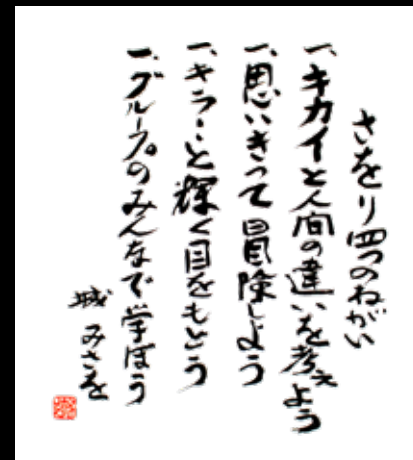 さをり四つのねがい
一、キカイと人間の違いを考えよう
一、思いきって冒険しよう
一、キラキラと輝く目をもとう
一、グループのみんなで学ぼう
城みさを